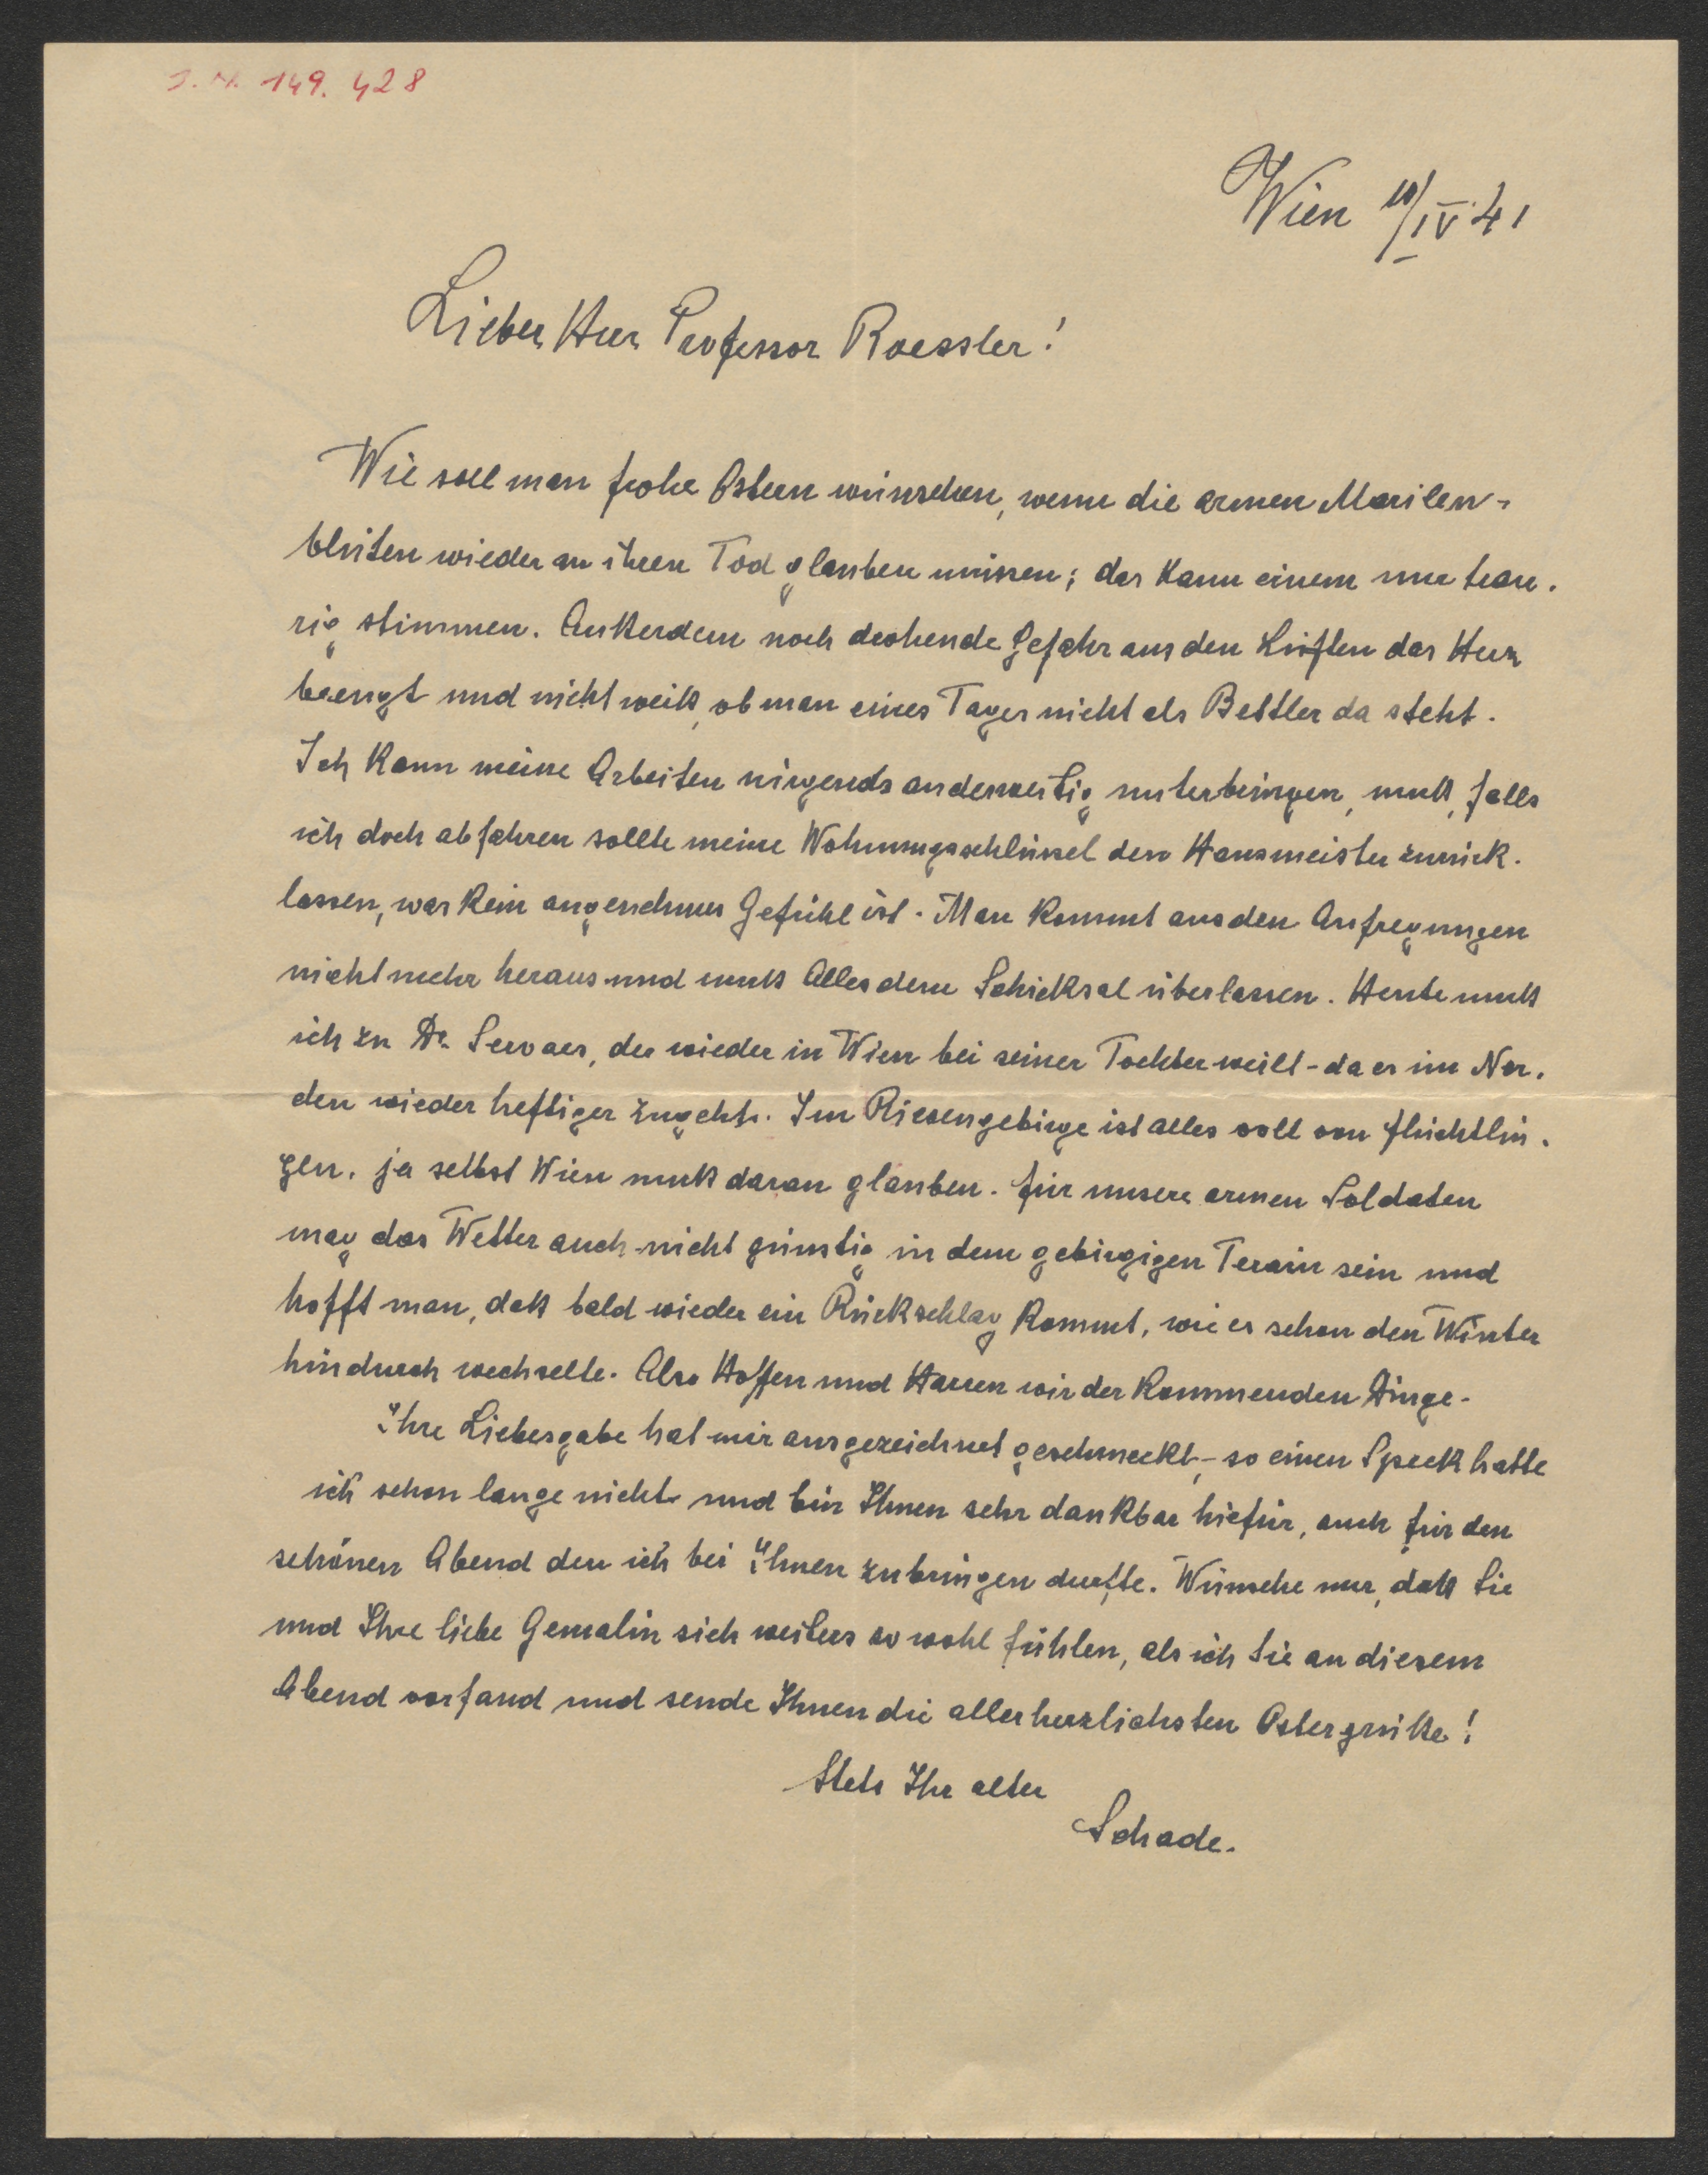 J.N. 149.428
Wien 10/IV 41
Lieber Herr Professor Roessler!
Wie soll man frohe Ostern wünschen, wenn die armen Marilen-
blüten wieder an ihren Tod glauben müssen; das kann einem nur trau-
rig stimmen. Außerdem noch drohende Gefahr aus den Lüften das Herz
beengt und nicht weiß, ob man eines Tages nicht als Bettler da steht.
Ich kann meine Arbeiten nirgends anderweitig unterbringen, muß, falls
ich doch abfahren sollte meine Wohnungsschlüssel dem Hausmeister zurück-
lassen, was kein angenehmes Gefühl ist. Man kommt aus den Aufregungen
nicht mehr heraus und muß Alles dem Schicksal überlassen. Heute muß
ich zu Dr. Servaes, der wieder in Wien bei seiner Tochter weilt - da es im Nor-
den wieder heftiger zugeht. Im Riesengebirge ist alles voll von Flüchtlin-
gen. ja selbst Wien muß daran glauben. Für unsere armen Soldaten
mag das Wetter auch nicht günstig in dem gebirgigen Terain sein und
hofft man, daß bald wieder ein Rückschlag kommt, wie es schon den Winter
hindurch wechselte. Also Hoffen und Harren wir der kommenden Dinge.
Ihre Liebesgabe hat mir ausgezeichnet geschmeckt, - so einen Speck hatte
ich schon lange nicht und bin Ihnen sehr dankbar hiefür, auch für den
schönen Abend den ich bei Ihnen zubringen durfte. Wünsche nur, daß Sie
und Ihre liebe Gemalin sich weiters so wohl fühlen, als ich Sie an diesem
Abend vorfand und sende Ihnen die allerherzlichsten Ostergrüße!
Stets Ihr alter
Schade.